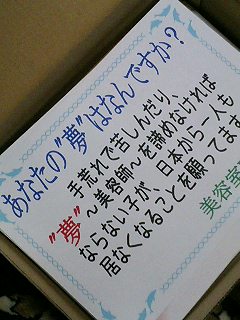 あなたの"夢"はなんですか？
手荒れで苦しんだり、
"夢"～美容師～を諦めなければ
ならない子が、日本から一人も
居なくなることを願ってます
美容室